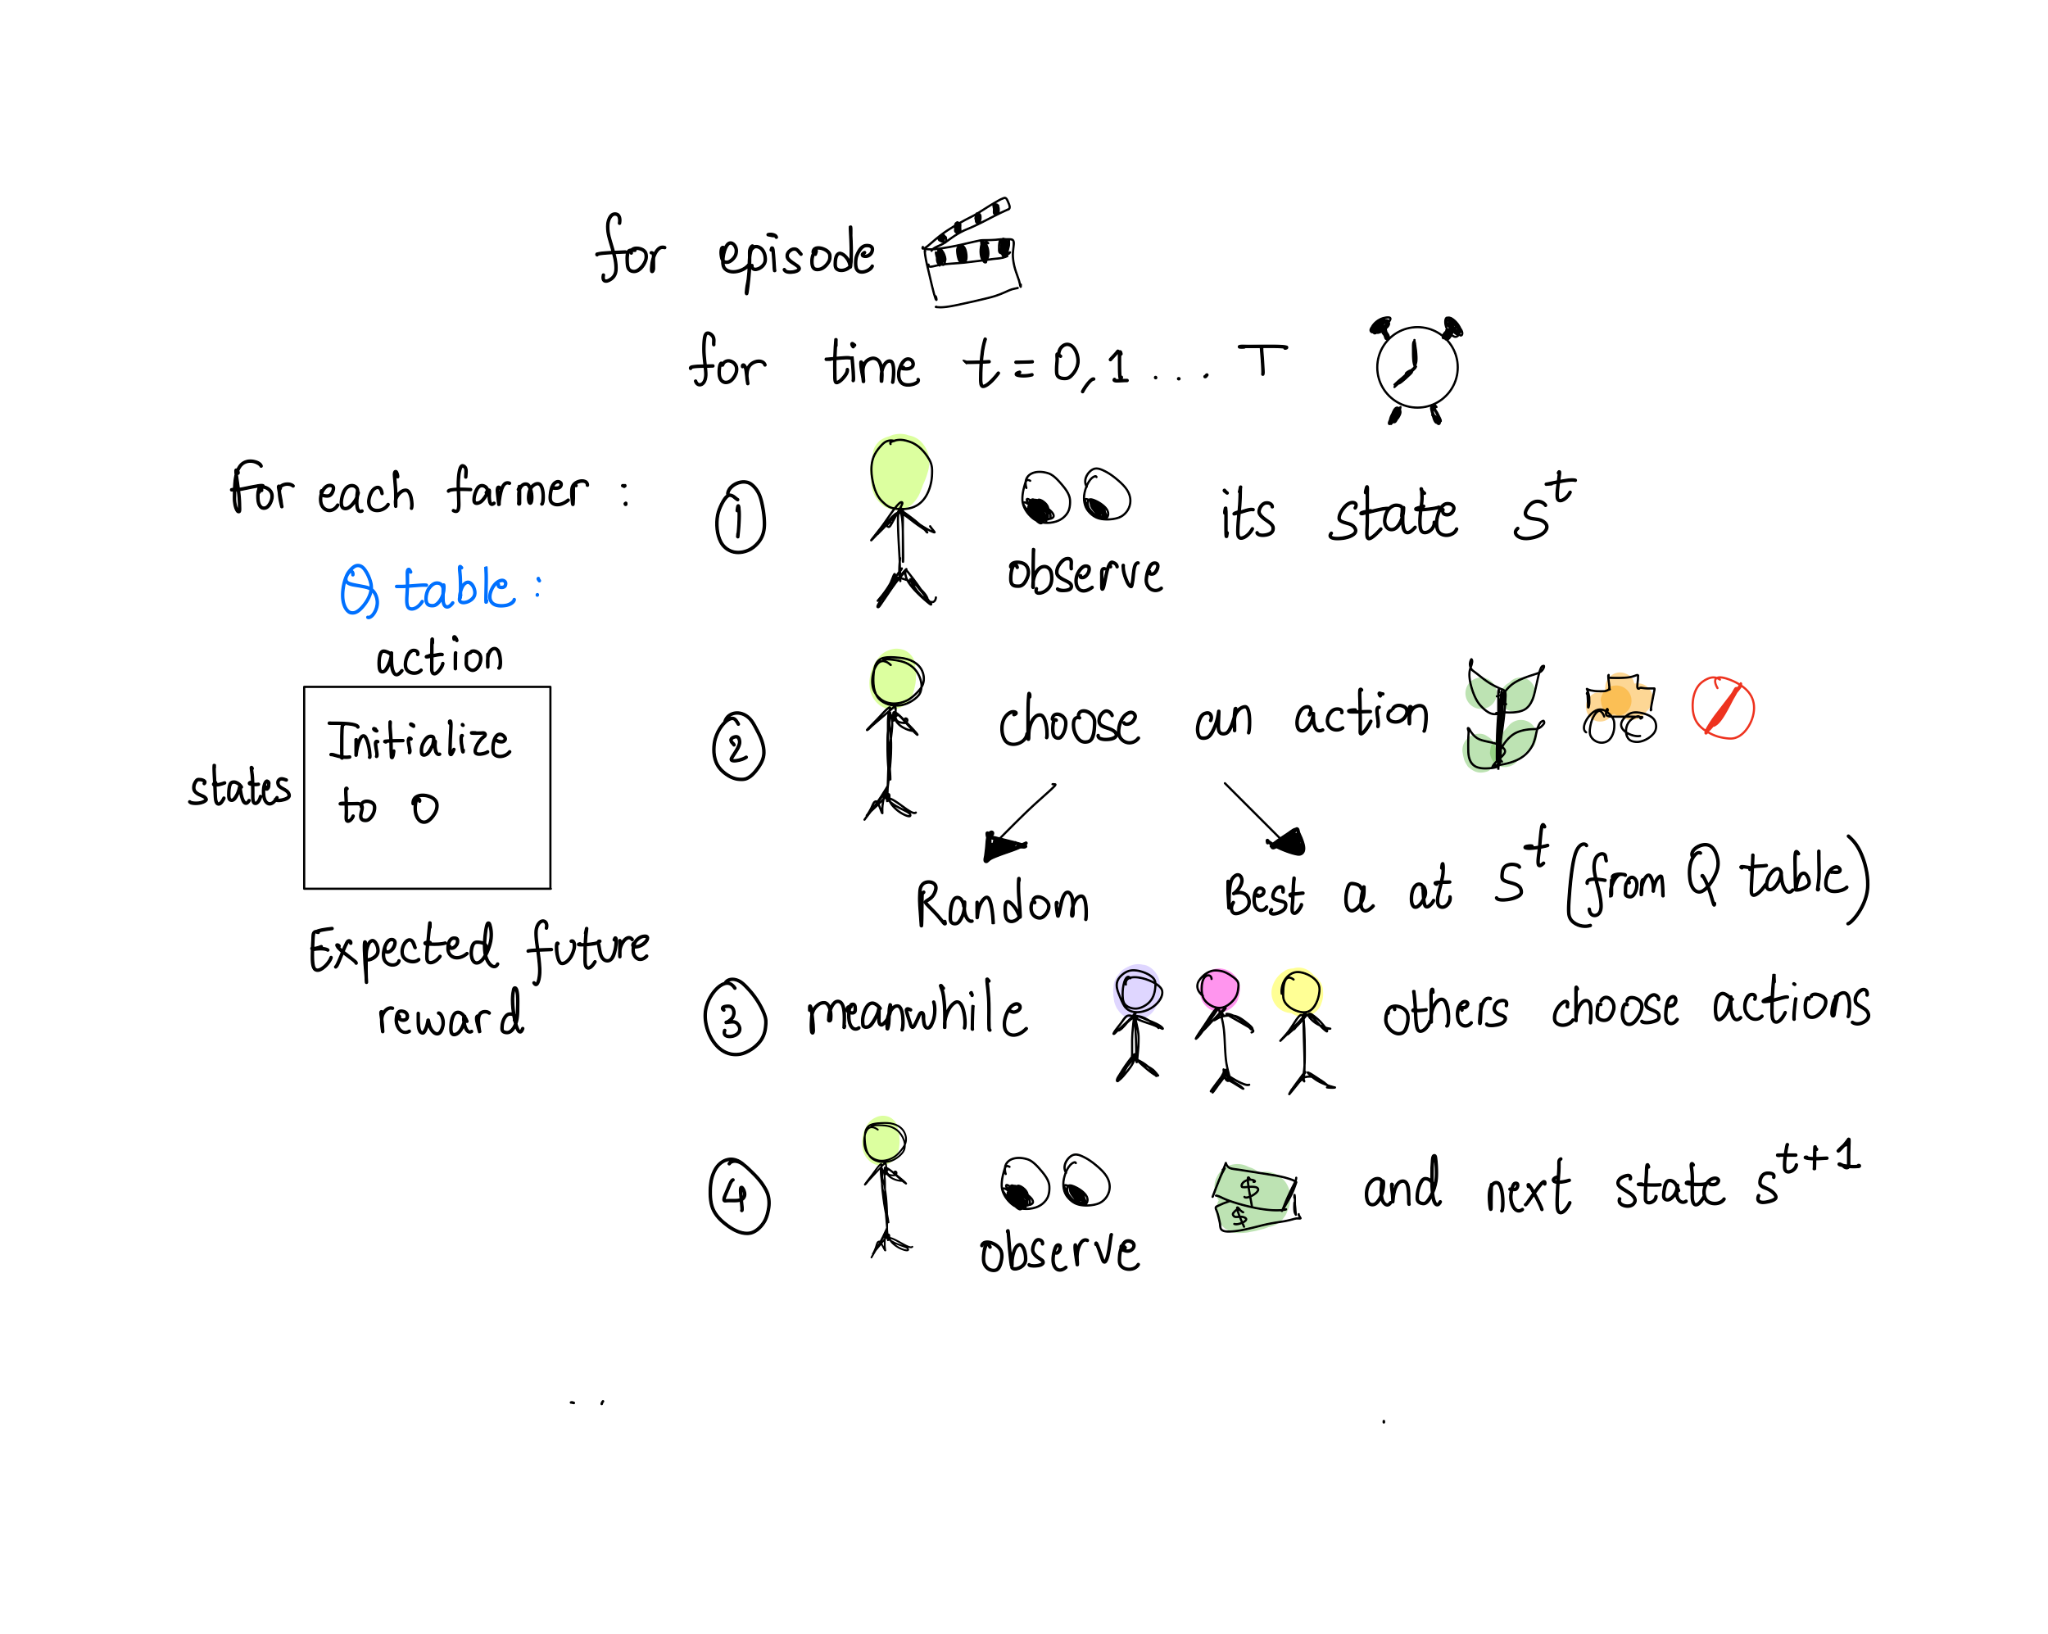 for episode
for time t = 0, 1 ... T
for each farmer :
Q table :
action
states
Initialize
to 0
Expected future
reward
1
its state s^t
observe
2
choose an action
Random
Best a at s^t (from Q table)
3 meanwhile others choose actions
4
$
$
and next state s^t+1
observe